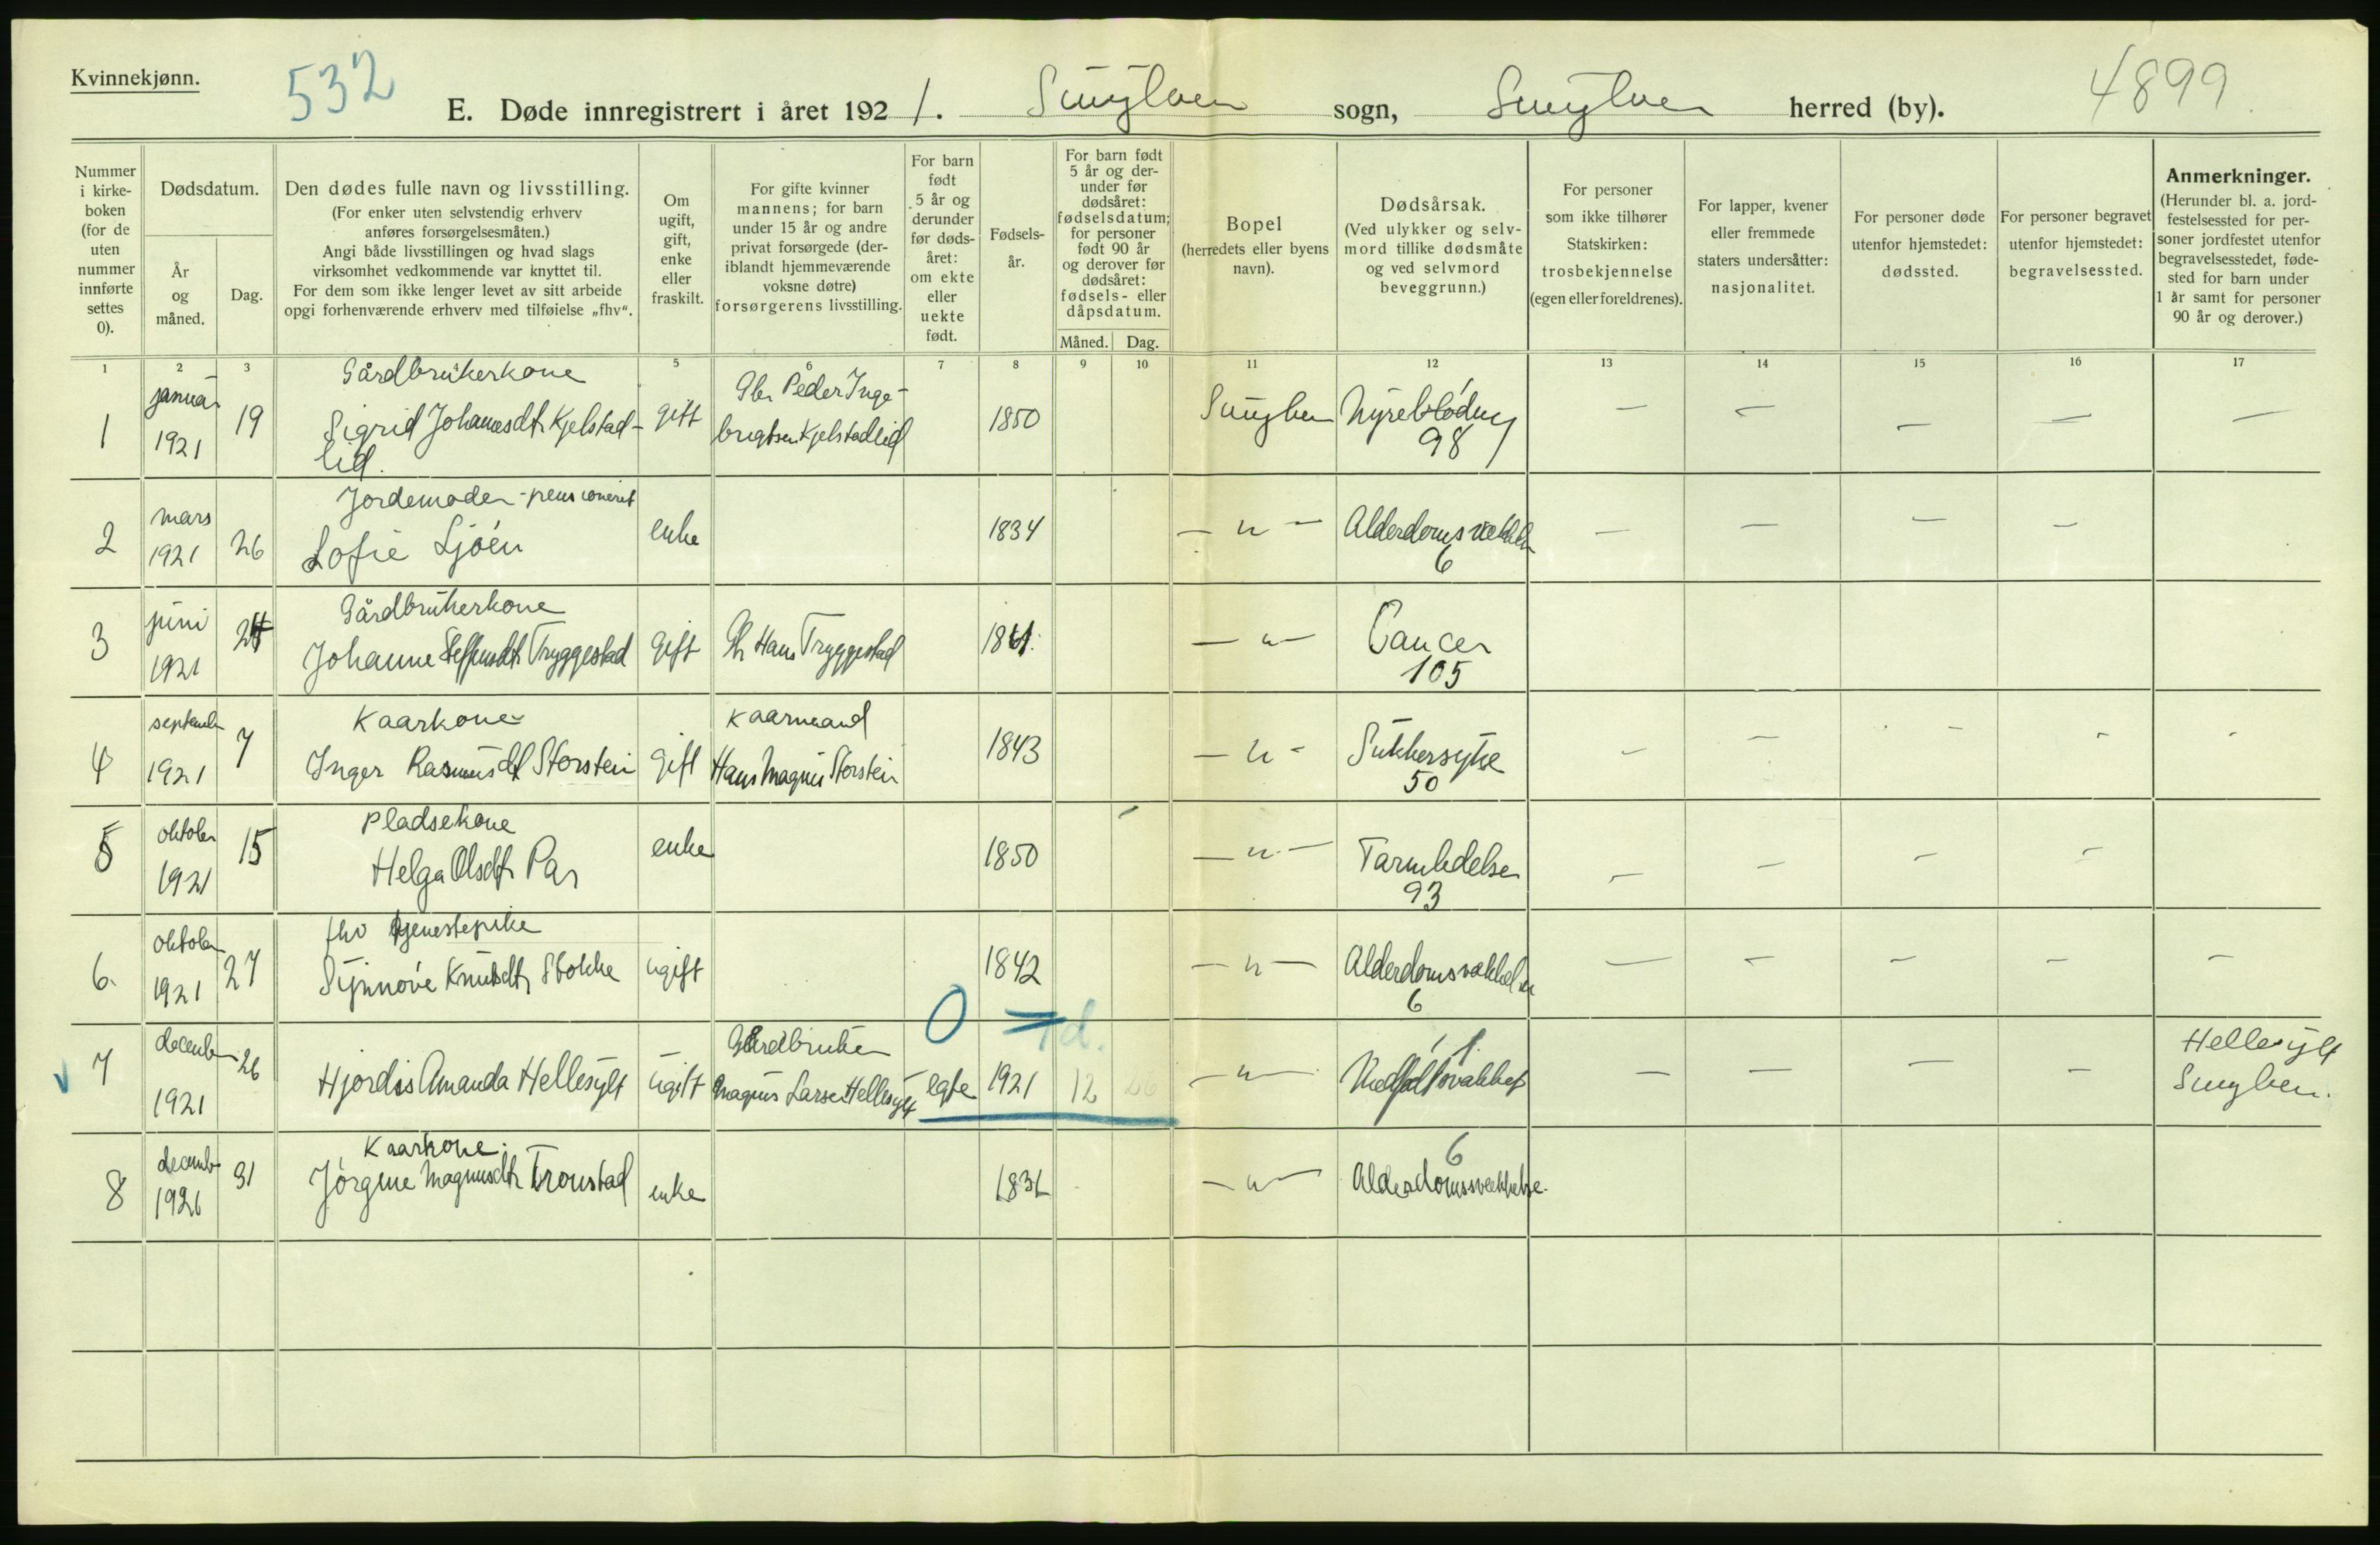 Kvinnekjønn.
532
E. Døde innregistrert i året 1921. Sunylven sogn, Sunylven herred (by).
4899
Nummer i kirke-boken (for de uten nummer innførte settes 0).
Dødsdatum.
År og måned.
Dag.
Den dødes fulle navn og livsstilling.
(For enker uten selvstendig erhverv
anføres forsørgelsesmåten.)
Angi både livsstillingen og hvad slags
virksomhet vedkommende var knyttet til.
For dem som ikke lenger levet av sitt arbeide
opgi forhenværende erhverv med tilføielse „fhv“.
Om ugift, gift, enke eller fraskilt.
For gifte kvinner
mannens; for barn
under 15 år og andre
privat forsørgede (der-
iblandt hjemmeværende
voksne døtre)
forsørgerens livsstilling.
For barn født 5 år og derunder før døds-året: om ekte eller uekte født.
Fødsels-år.
For barn født
5 år og der-
under før
dødsåret:
fødselsdatum;
for personer
født 90 år
og derover før
dødsåret:
fødsels- eller
dåpsdatum.
Måned. Dag.
Bopel
(herredets eller byens
navn).
Dødsårsak.
(Ved ulykker og selv-
mord tillike dødsmåte
og ved selvmord
beveggrunn.)
For personer
som ikke tilhører
Statskirken:
trosbekjennelse
(egen eller foreldrenes).
For lapper, kvener
eller fremmede
staters undersåtter:
nasjonalitet.
For personer døde
utenfor hjemstedet:
dødssted.
For personer begravet
utenfor hjemstedet:
begravelsessted.
Anmerkninger.
(Herunder bl. a. jord-
festelsessted for per-
soner jordfestet utenfor
begravelsesstedet, føde-
sted for barn under
1 år samt for personer
90 år og derover.)
1 2 3 5 6 7 8 9 10 11 12 13 14 15 16 17
1 januar 1921 19 Gårdbrukerkone
Sigrid Johannesdtr Kjelstad-
lid. gift Gbr Peder Inge-
brigtsen Kjelstadlid 1850 Sunylven Nyreblødning
98 — — — — —
2 mars 1921 26 Jordemoder - pensioneret
Sofie Ljøen enke 1834 — " — Alderdomssvækkelse
6 — — — —
3 juni 1921 24 Gårdbrukerkone
Johanne Steffensdtr Tryggestad gift Gbr Hans Tryggestad — " — Cancer
105
4 september 1921 7 Kaarkone
Inger Rasmusdtr Storstein gift Kaarmand
Hans Magnus Storstein 1843 — " — Sukkersyke
50 — — - - - -
5 oktober 1921 15 Pladsekone
Helga Olsdtr enke 1850 — " — Tarmlidelse
93 — — — —
6. oktober 1921 27 fhv tjenestepike
Synnøve Knutsdtr Stokke ugift 1842 — " — Alderdomssvækkelse
6 — — — — —
0 1 d.
7 december 1921 26 Hjørdis Amanda Hellesylt ugift Gårdbruker
Magnus Larsen Hellesylt egte 1921 12 26 — " — 1.
Medfødt svakhet — — — — Hellesylt
Sunylven.
8 december 1921 31 Kaarkone.
Jørgine Magnusdtr Tronstad enke 1831 — " — 6
Alderdomssvækkelse.